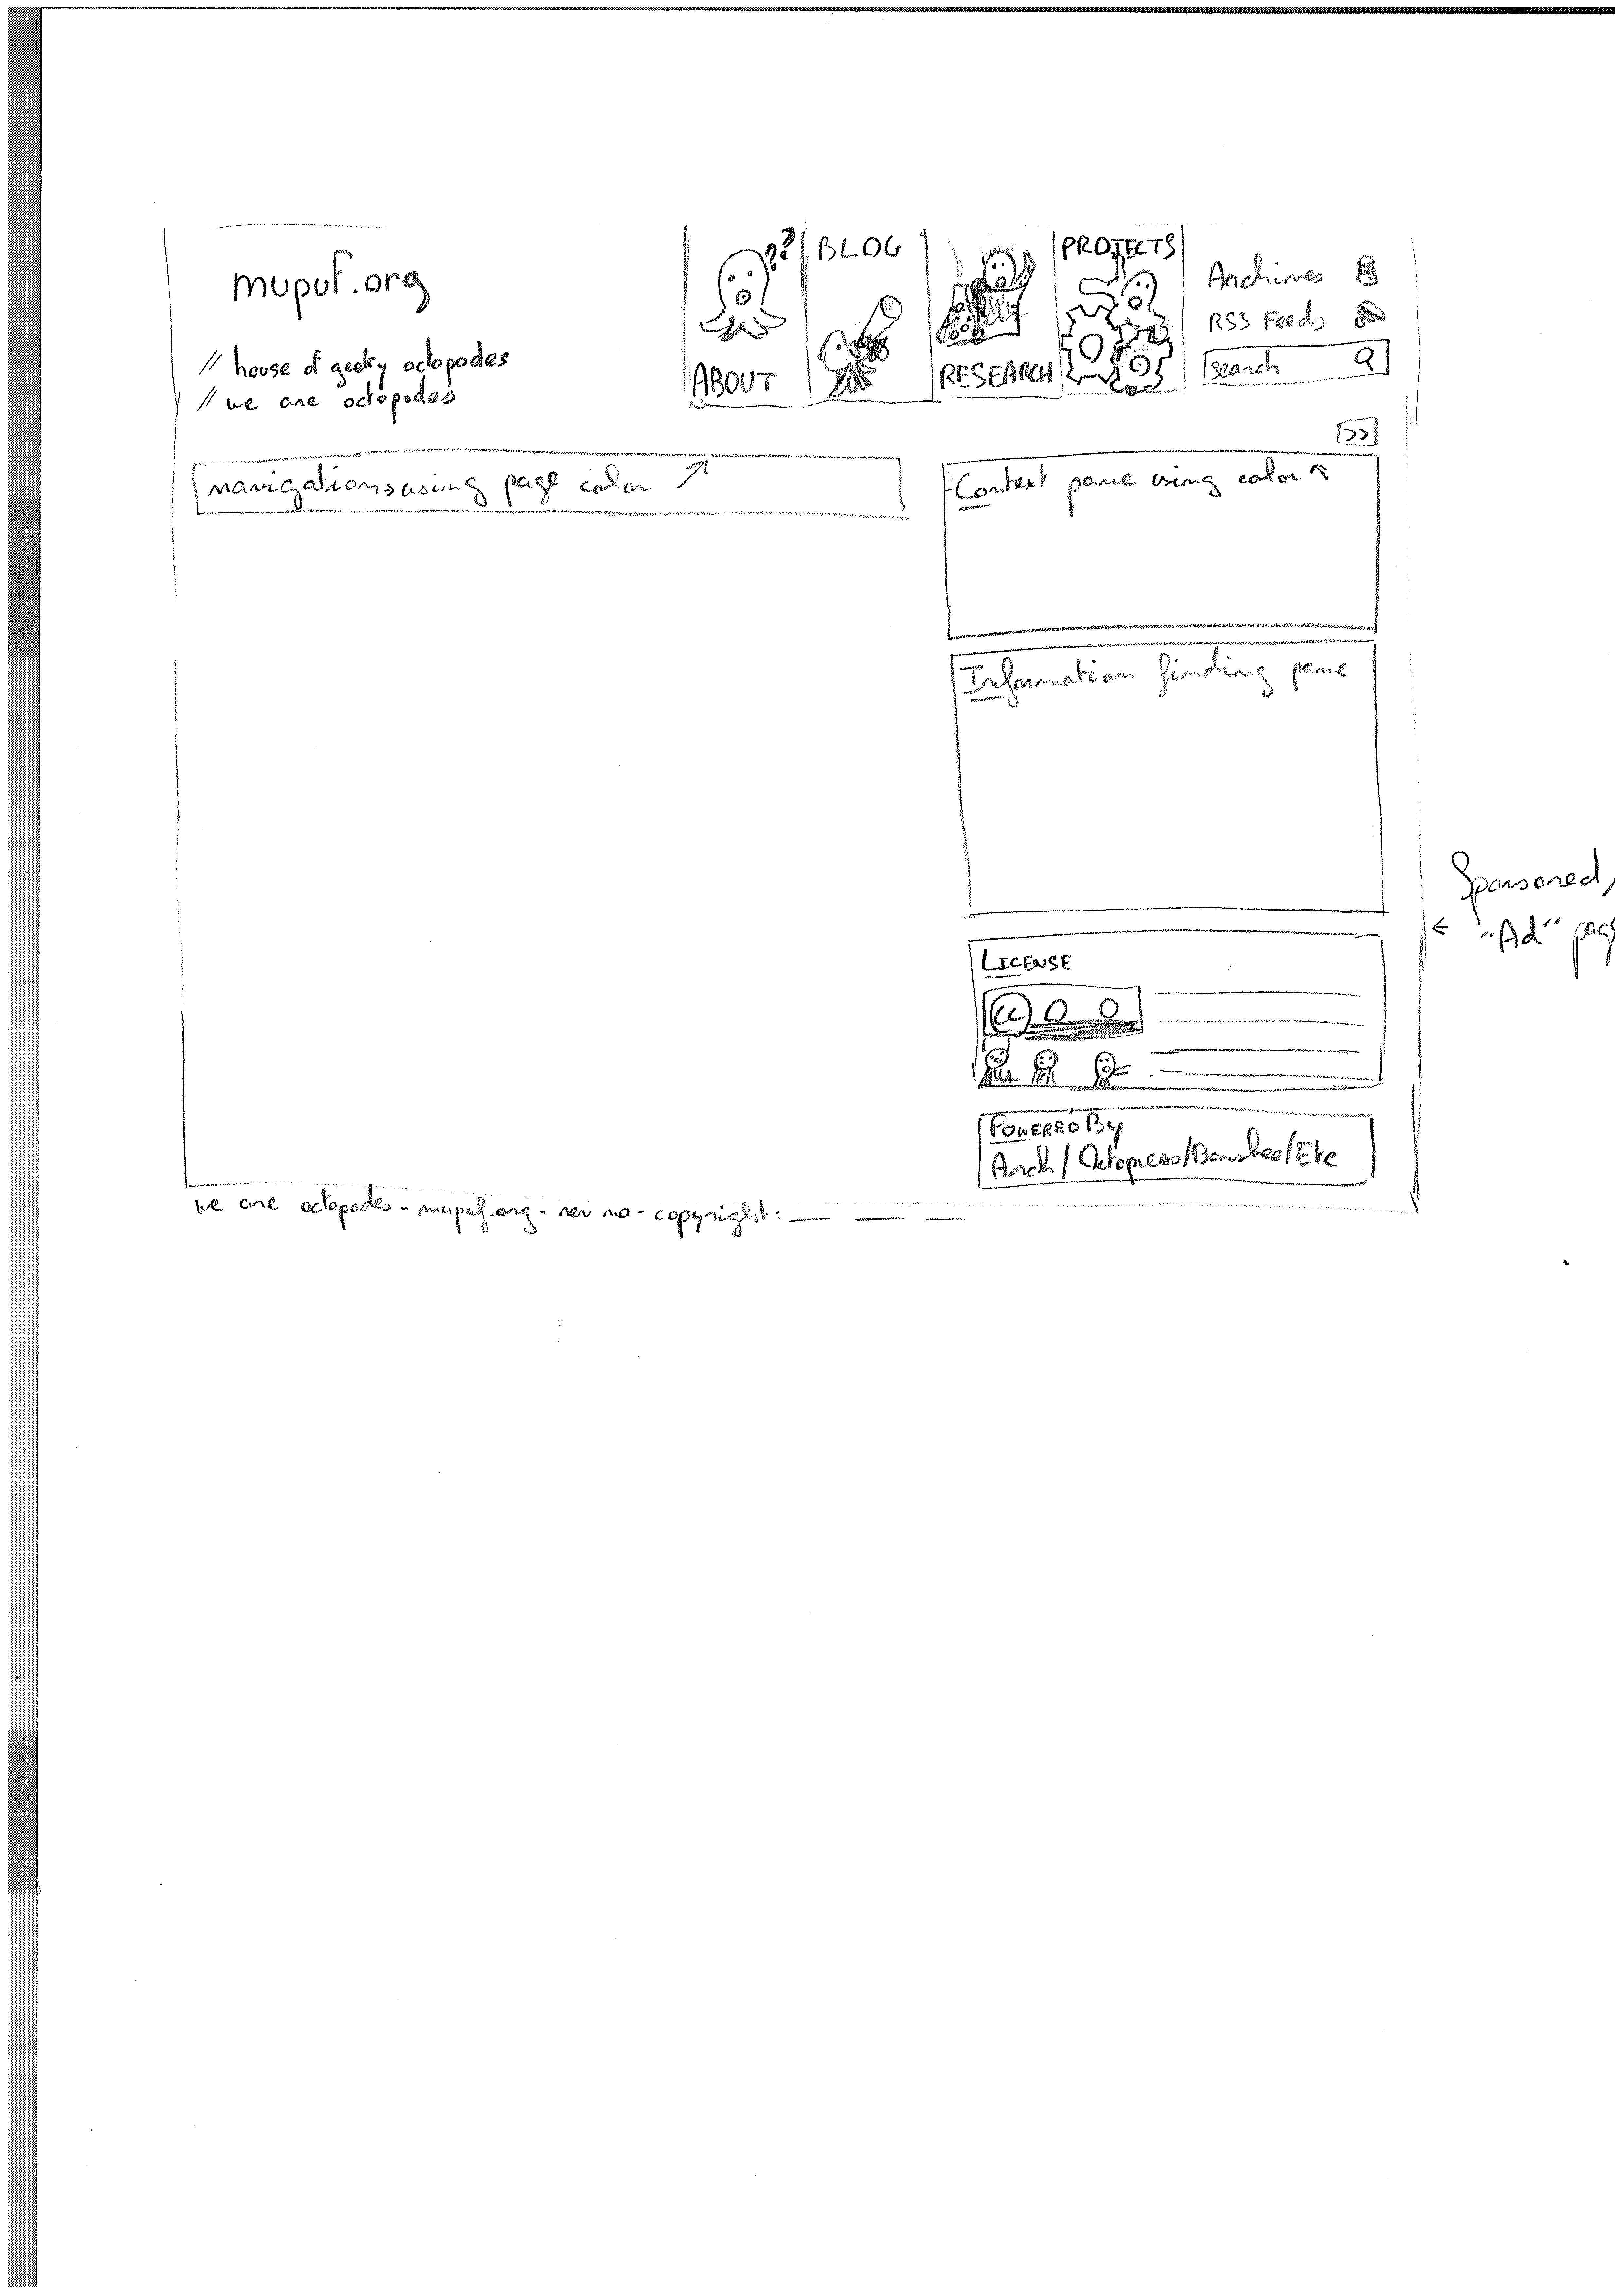 mupuf.org
// house of geeky octopodes
// we are octopodes
??
ABOUT
BLOG
RESEARCH
PROJECTS
Archives
RSS Feeds
search
>>
navigation using page color
Context pane using color
Information finding pane
Sponsored,
← "Ad" pag
LICENSE
cc
POWERED By
Arch / Octopress/Banshee/Etc
we are octopodes - mupuf.org - rev no - copyright: